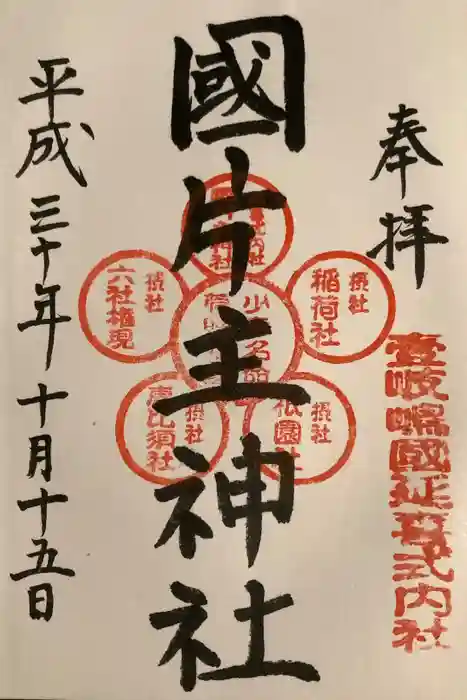 奉拝
壹岐嶋國延喜式内社
國片主神社
平成三十年十月十五日
摂社
稲荷社
摂社
六社権現
少名
摂社
祇園社
摂社
恵比須社